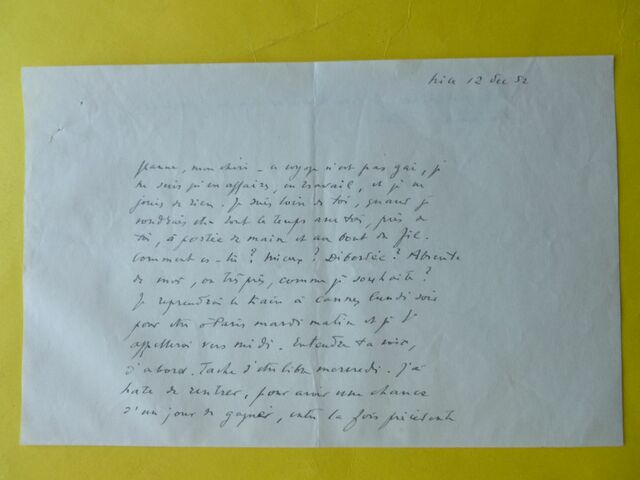 Nice 12 Dec 52
Jeanne, mon chéri - ce voyage n'est pas gai, je
ne suis qu'en affaires, en travail, et je ne
jouis de rien. Je suis loin de toi, quand je
voudrais être tout le temps avec toi, près de
toi, à portée de main et au bout du fil.
Comment es-tu ? Mieux ? Débordée ? Absente
de moi, ou très près, comme je souhaite ?
Je reprendrai le train à Cannes lundi soir
pour être à Paris mardi matin et je t'
appellerai vers midi. Entendre ta voix,
d'abord. Tache d'être libre mercredi. J'ai
hate de rentrer, pour avoir une chance
d'un jour de gagner, entre la fois précédente